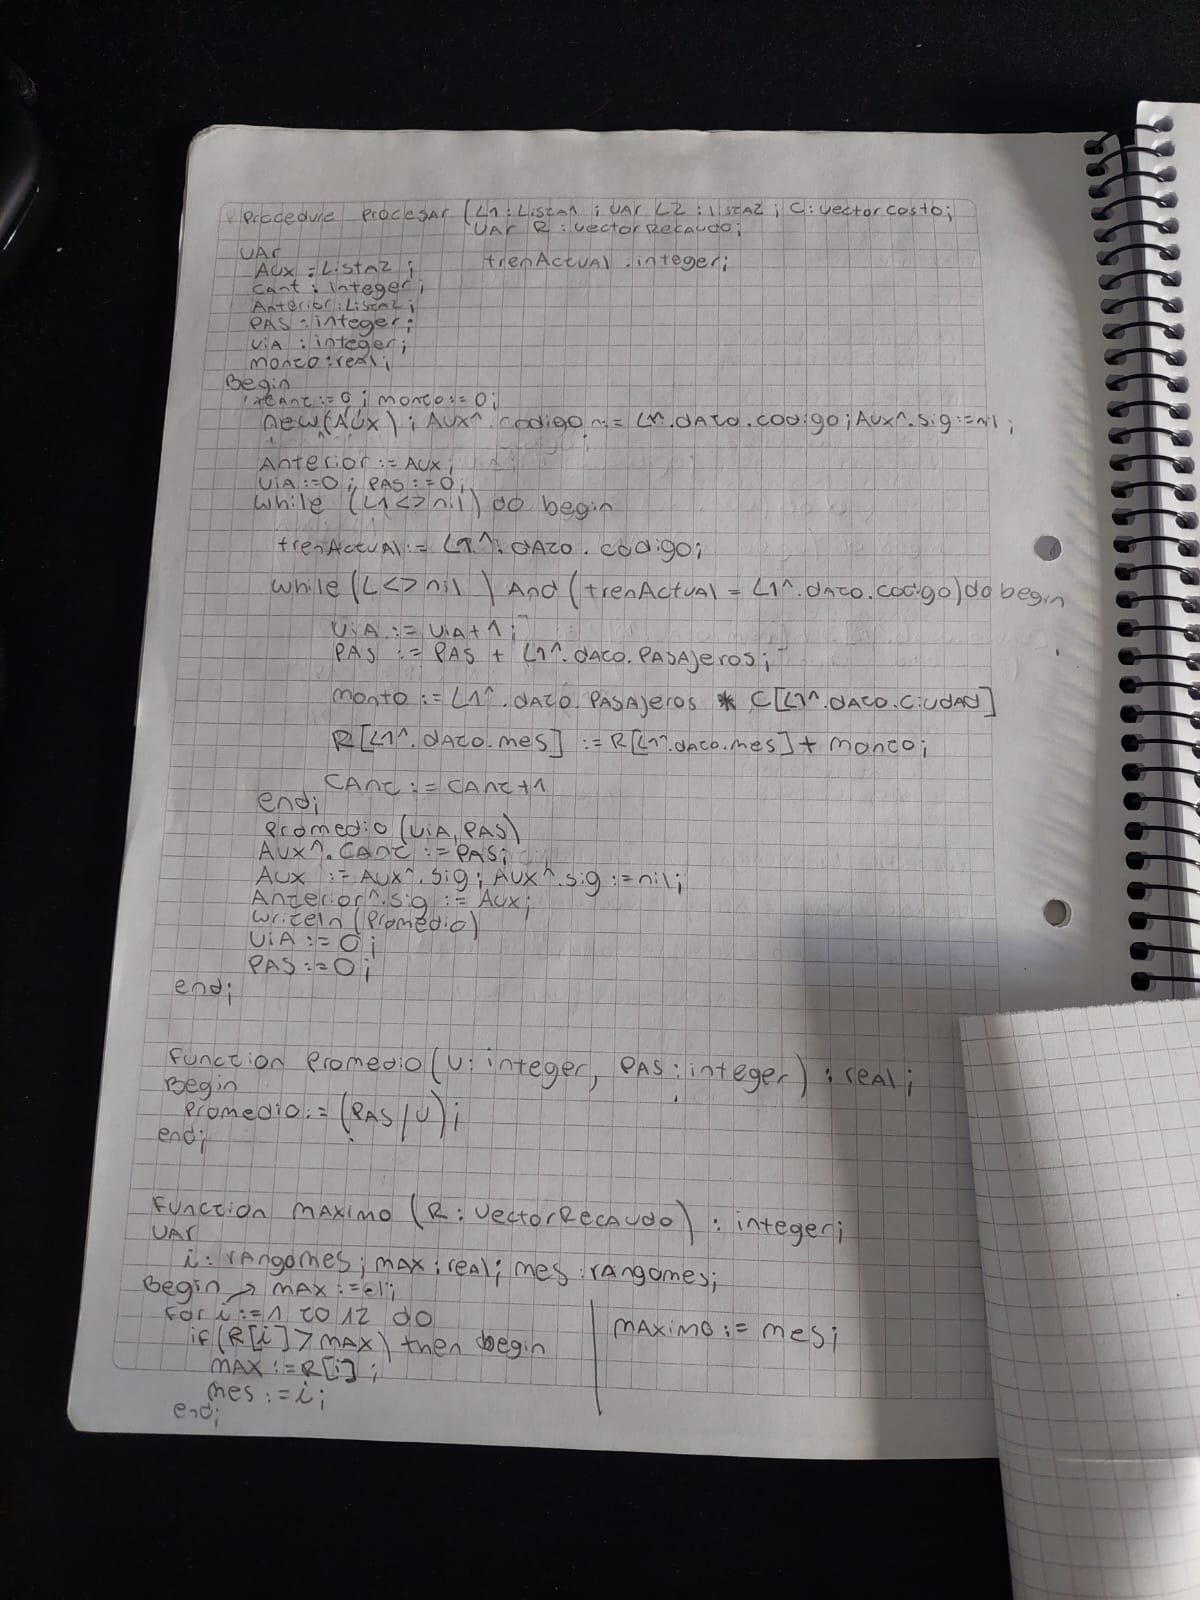 Procedure Procesar (L1:Lista1; VAR L2:lista2; C:vectorcosto;
VAR R:vectorRecaudo;
VAR
Aux:Lista2; trenActual.integer;
cant:integer;
Anterior:Lista2;
PAS:integer;
viA:integer;
monto:real;
Begin
cant:=0; monto:=0;
new(Aux); Aux^.codigo:=L1^.dato.codigo; Aux^.sig:=nil;
Anterior:=Aux;
viA:=0; PAS:=0;
while (L1<>nil) do begin
trenActual:=L1^.dato.codigo;
while (L<>nil) And (trenActual = L1^.dato.codigo) do begin
viA:=viA+1;
PAS:=PAS + L1^.dato.PASAjeros;
monto:=L1^.dato.PASAjeros * C[L1^.dato.ciudad]
R[L1^.dato.mes]:=R[L1^.dato.mes]+monto;
cant:=cant+1
end;
Promedio(viA,PAS)
Aux^.cant:=PAS;
Aux:=Aux^.sig; Aux^.sig:=nil;
Anterior^.sig:=Aux;
writeln(Promedio)
viA:=0;
PAS:=0;
end;
Function Promedio(V:integer, PAS:integer):real;
Begin
Promedio:=(PAS/V);
end;
Function maximo (R:vectorRecaudo):integer;
VAR
i:rangomes; max:real; mes:rangomes;
Begin → max:=-1;
for i:=1 to 12 do
if (R[i]>max) then begin
max:=R[i];
mes:=i;
end;
maximo:=mes;